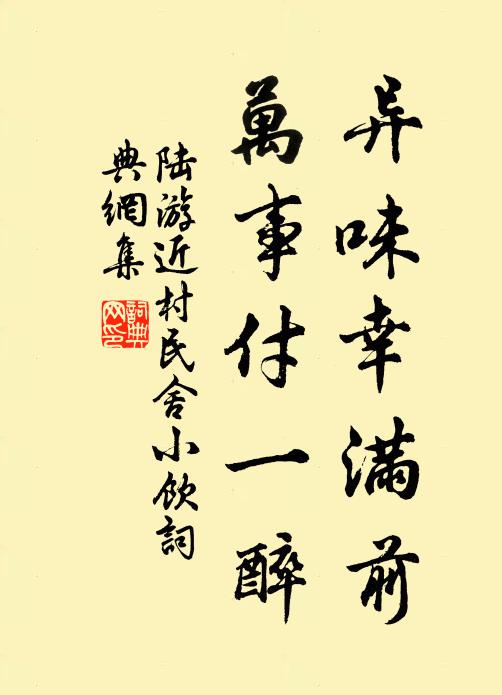 异味幸满前
萬事付一醉
陆游近村民舍小饮詞
典網集
詞典网印